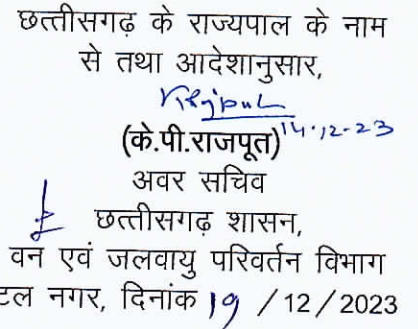 छत्तीसगढ़ के राज्यपाल के नाम
से तथा आदेशानुसार,
14.12-23
(के.पी.राजपूत)
अवर सचिव
छत्तीसगढ़ शासन,
वन एवं जलवायु परिवर्तन विभाग
टल नगर, दिनांक 19 /12/2023